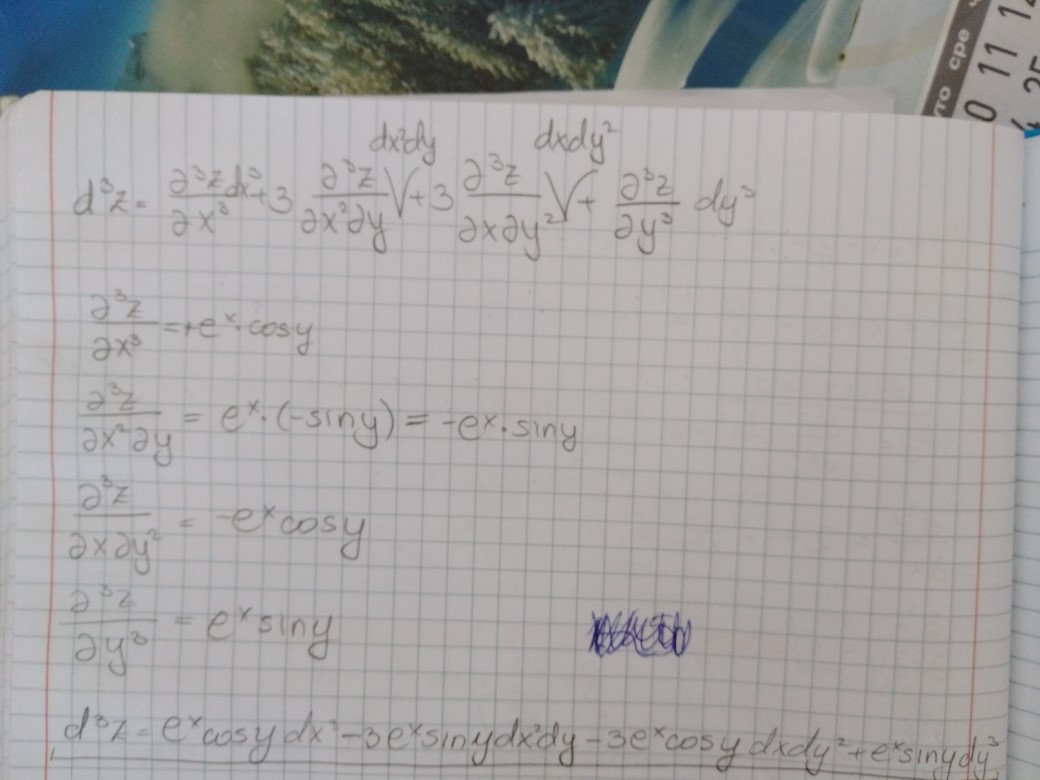 то сре ч
0 11 1
4 25
dx²dy dxdy²
d³z = ∂³z/∂x³ dx³ + 3 ∂³z/∂x²∂y √ + 3 ∂³z/∂x∂y² √ + ∂³z/∂y³ dy³
∂³z/∂x³ = +eˣ·cosy
∂³z/∂x²∂y = eˣ·(-siny) = -eˣ·siny
∂³z/∂x∂y² = -eˣcosy
∂³z/∂y³ = eˣsiny
d³z = eˣcosydx³-3eˣsinydx²dy-3eˣcosydxdy²+eˣsinydy³